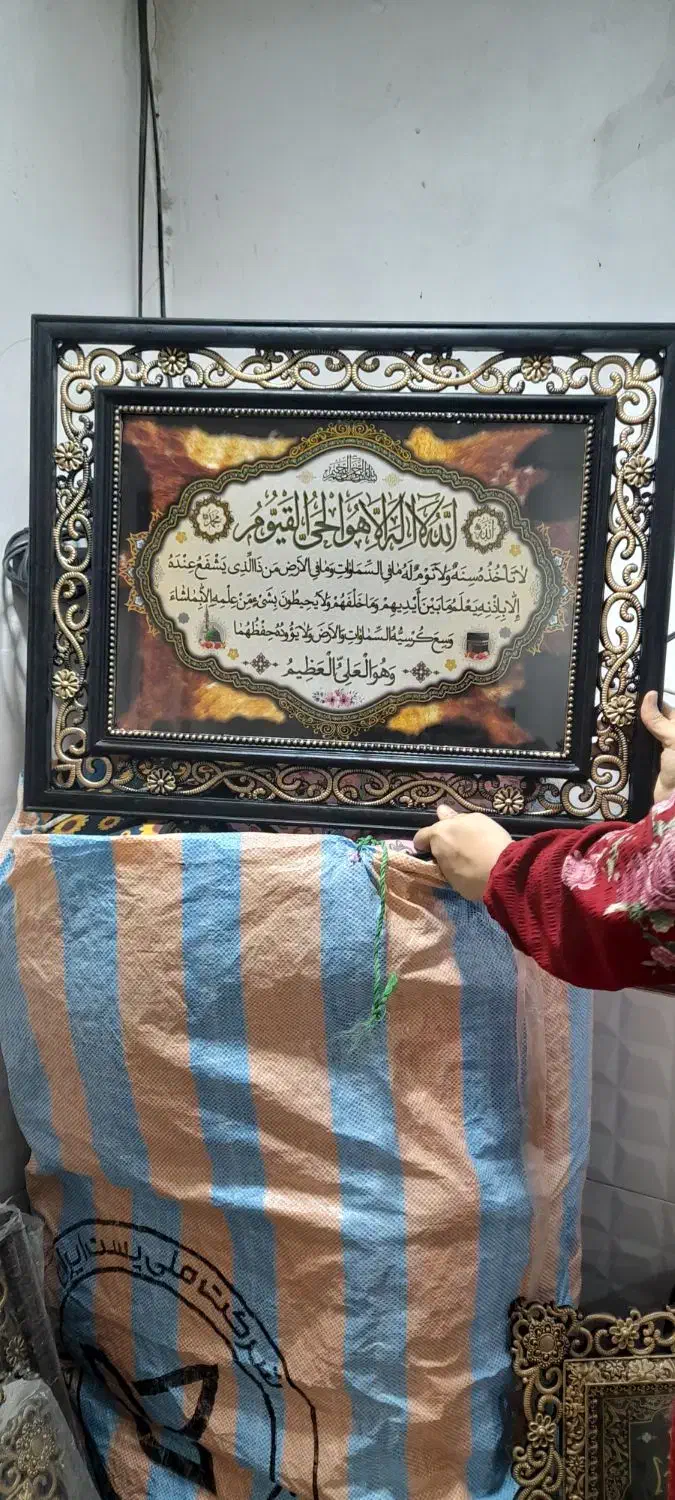 بسم الله الرحمن الرحيم
اللّٰهُ لَا إِلٰهَ إِلَّا هُوَ الْحَيُّ الْقَيُّومُ
الله
محمد
لَا تَأْخُذُهُ سِنَةٌ وَلَا نَوْمٌ لَهُ مَا فِي السَّمَاوَاتِ وَمَا فِي الْأَرْضِ مَنْ ذَا الَّذِي يَشْفَعُ عِنْدَهُ
إِلَّا بِإِذْنِهِ يَعْلَمُ مَا بَيْنَ أَيْدِيهِمْ وَمَا خَلْفَهُمْ وَلَا يُحِيطُونَ بِشَيْءٍ مِنْ عِلْمِهِ إِلَّا بِمَا شَاءَ
وَسِعَ كُرْسِيُّهُ السَّمَاوَاتِ وَالْأَرْضَ وَلَا يَؤُودُهُ حِفْظُهُمَا
وَهُوَ الْعَلِيُّ الْعَظِيمُ
شرکت ملی پست ایران